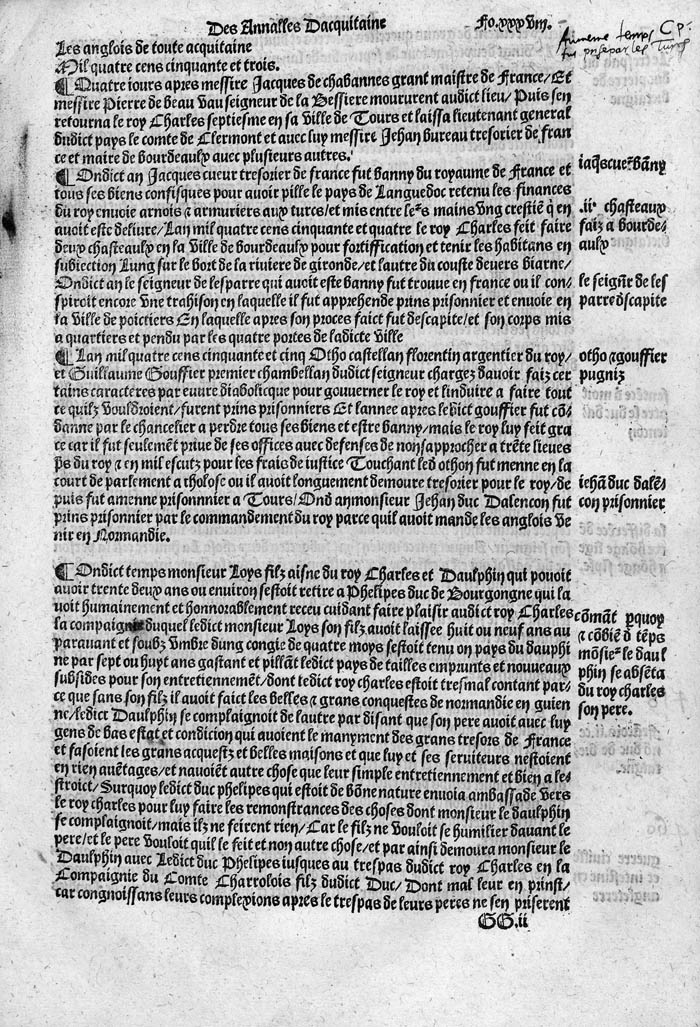 Des Annalles Dacquitaine
Fo.xxxviii.
Les anglois de toute acquitaine
Mil quatre cens cinquante et trois.
¶ Quatre iours apres messire Jacques de chabannes grant maistre de France/ Et
messire Pierre de beau vau seigneur de la Bessiere moururent audict lieu/ Puis sen
retourna le roy Charles septiesme en sa ville de Tours et laissa lieutenant general
dudict pays le comte de Clermont et avec luy messire Jehan bureau tresorier de fran
ce et maire de bourdeaulx avec plusieurs autres.
¶ Ondict an Jacques cueur tresorier de france fut banny du royaume de France et
tous ses biens confisques pour avoir pille le pays de Languedoc retenu les finances
du roy envoie arnois ⁊ armuriers aux turcs/ et mis entre les mains vng crestiē q̄ en
avoit este delivre/ Lan mil quatre cens cinquante et quatre le roy Charles feit faire
deux chasteaulx en la ville de bourdeaulx pour fortiffication et tenir les habitans en
subiection Lung sur le bort de la riviere de gironde/ et lautre du couste devers biarne/
Ondict an le seigneur de lesparre qui avoit este banny fut trouve en france ou il con-
spiroit encore vne trahison en laquelle il fut apprehende prins prisonnier et envoie en
la ville de poictiers En laquelle apres son proces faict fut descapite/ et son corps mis
a quartiers et pendu par les quatre portes de ladicte ville
¶ Lan mil quatre cens cinquante et cinq Otho castellan florentin argentier du roy/
et Guillaume Gouffier premier chambellan dudict seigneur chargez davoir faiz cer
tains caracteres par euvre diabolicque pour gouverner le roy et linduire a faire tout
ce quilz vouldroient/ furent prins prisonniers Et lannee apres ledict gouffier fut cō-
danne par le chancelier a perdre tous ses biens et estre banny/ mais le roy luy feit gra
ce car il fut seulemēt prive de ses offices avec defenses de non sapprocher a trēte lieues
p̄s du roy ⁊ en mil escutz pour les frais de iustice Touchant led othon fut menne en la
court de parlement a tholose ou il avoit longuement demoure tresorier pour le roy/ de
puis fut amenne prisonnnier a Tours/ Ond an monsieur Jehan duc Dalencon fut
prins prisonnier par le commandement du roy parce quil avoit mande les anglois ve
nir en Normandie.
¶ Ondict temps monsieur Loys filz aisne du roy Charles et Daulphin qui pouoit
avoir trente deux ans ou environ sestoit retire a Phelipes duc de Bourgongne qui la
voit humainement et honnorablement receu cuidant faire plaisir audict roy Charles
la compaignie duquel ledict monsieur Loys son filz avoit laissee huit ou neuf ans au
paravant et soubz vmbre dung congie de quatre moys sestoit tenu on pays du dauphi
ne par sept ou huyt ans gastant et pillāt ledict pays de tailles emprunts et nouveaux
subsides pour son entretiennemēt/ dont tedict roy charles estoit tresmal contant par-
ce que sans son filz il avoit faict les belles ⁊ grans conquestes de normandie en guien
ne/ ledict Daulphin se complaignoit de lautre par disant que son pere avoit avec luy
gens de bas estat et condicion qui avoient le manyment des grans tresors de France
et fasoient les grans acquestz et belles maisons et que luy et ses serviteurs nestoient
en rien avētages/ et navoiēt autre chose que leur simple entretiennement et bien a le-
stroict/ Surquoy ledict duc phelipes qui estoit de bōne nature envoia ambassade vers
le roy charles pour luy faire les remonstrances des choses dont monsieur le daulphin
se complaignoit/ mais ilz ne feirent rien/ Car le filz ne vouloit se humilier davant le
pere/ et le pere vouloit quil le feit et non autre chose/ et par ainsi demoura monsieur le
Daulphin avec Ledict duc Phelipes iusques au trespas dudict roy Charles en la
Compaignie du Comte Charrolois filz dudict Duc/ Dont mal leur en prinst/
car congnoissans leurs complexions apres le trespas de leurs peres ne sen priserent
GG.ii
iaq̄s cuer bāny
.ii. chasteaux
faiz a bourde-
aulx
le seignr̄ de les
parre d̄scapite
otho ⁊ gouffier
pugniz
iehā duc dalē-
con prisonnier
cōmāt p̄quoy
⁊ cōbiē d̄ tēps
mōsier̄ le daul
phin se absēta
du roy charles
son pere.